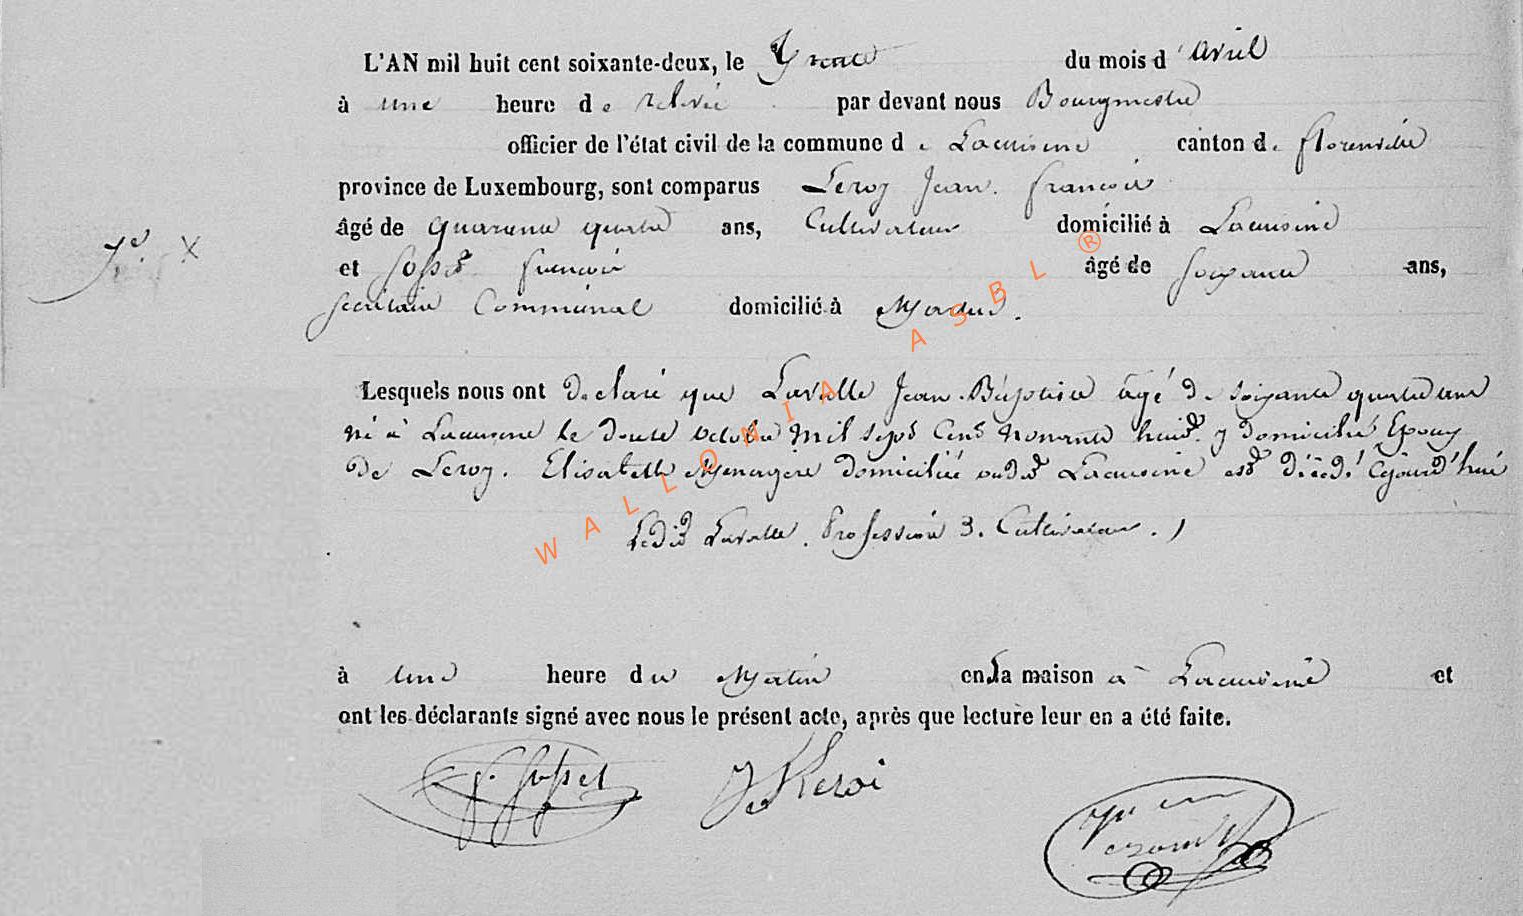 L'AN mil huit cent soixante-deux, le Trente du mois d'avril
à une heure de relevée par devant nous Bourgmestre
officier de l'état civil de la commune de Lacuisine canton de florenville
province de Luxembourg, sont comparus Leroy Jean francois
âgé de quarante quatre ans, Cultivateur domicilié à Lacuisine
et francois âgé de soixante ans,
secrétaire Communal domicilié à
Lesquels nous ont declaré que Lavalle Jean Baptiste âgé de soixante quatre ans
né à Lacuisine le douze octobre mil sept cent nonante huit y domicilié Epoux
de Leroy Elisabeth Menagère domiciliée audit Lacuisine est décédé cejourd'hui
Ledit Lavalle Profession Cultivateur.
à une heure du Matin en la maison à Lacuisine et
ont les déclarants signé avec nous le présent acte, après que lecture leur en a été faite.
Leroi
WALLONIA ASBL ®